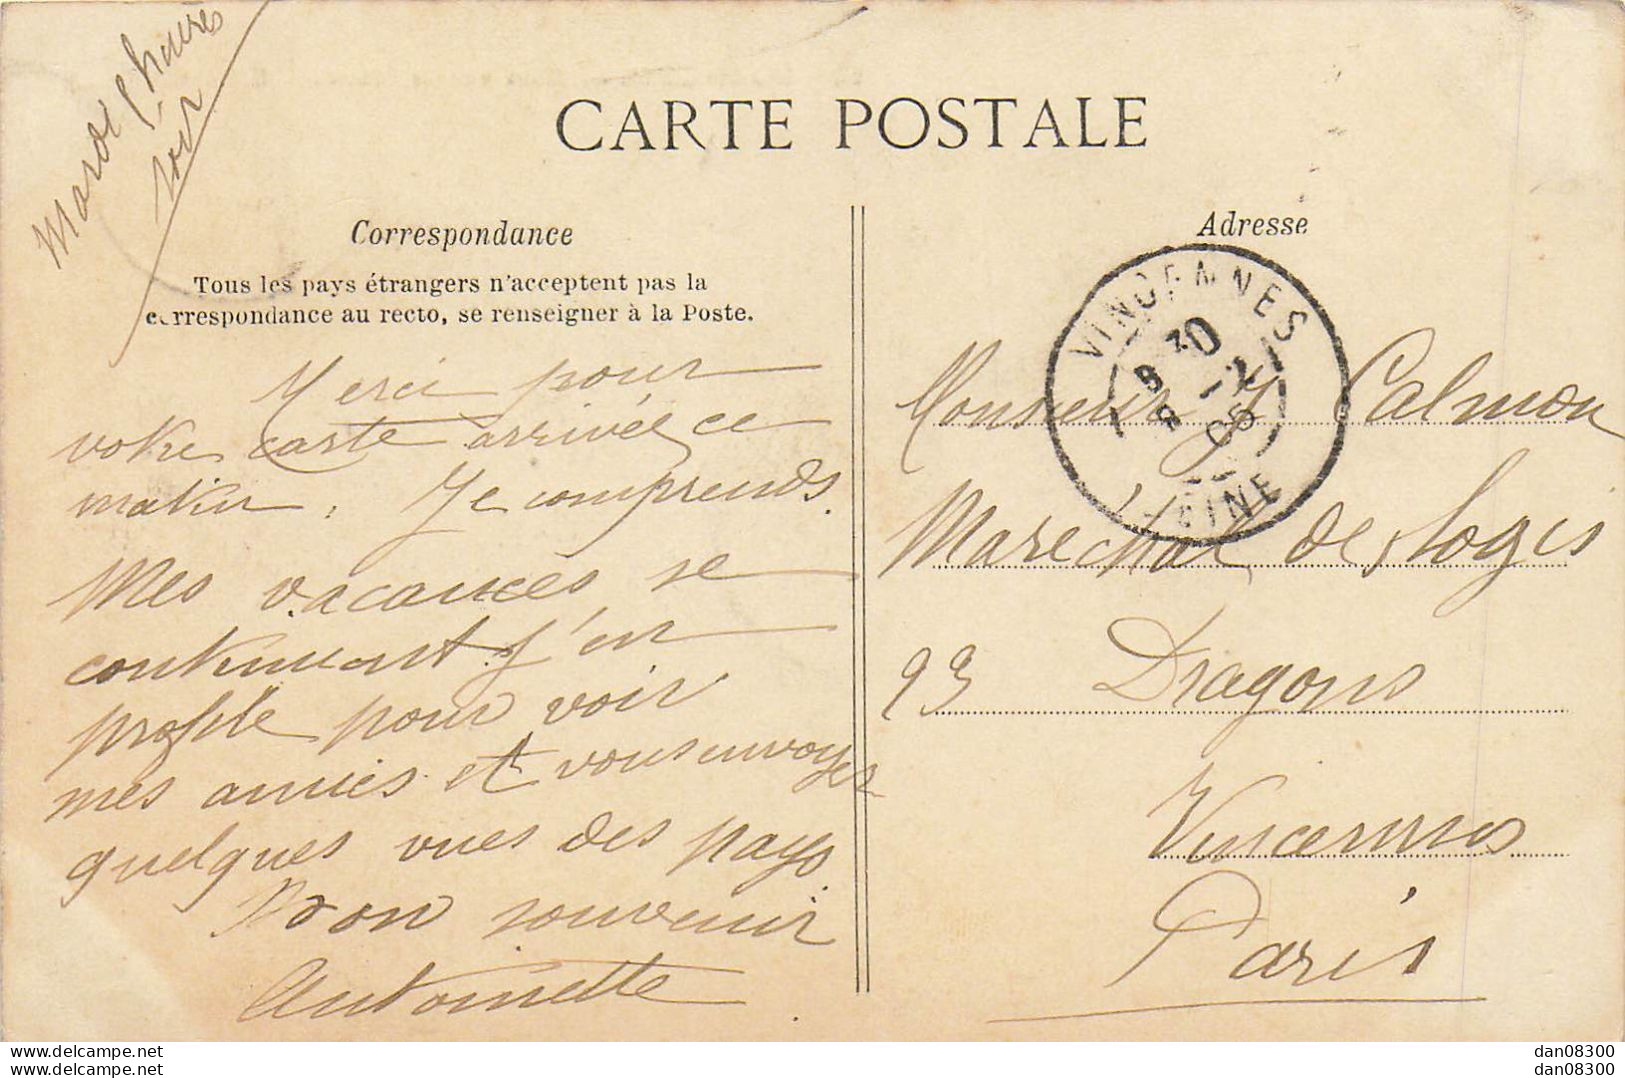 Mardi 8 heures
soir
CARTE POSTALE
Correspondance
Tous les pays étrangers n'acceptent pas la
correspondance au recto, se renseigner à la Poste.
Merci pour
votre carte arrivée ce
matin. Je comprends.
Mes vacances se
continuent j'en
profite pour voir
mes amies et vous envoyer
quelques vues des pays
Bon souvenir
Antoinette
Adresse
VINCENNES
8 30
8 -2
05
SEINE
Monsieur Calmon
Marechal de Logis
23 Dragons
Vincennes
Paris
dan08300
dan08300